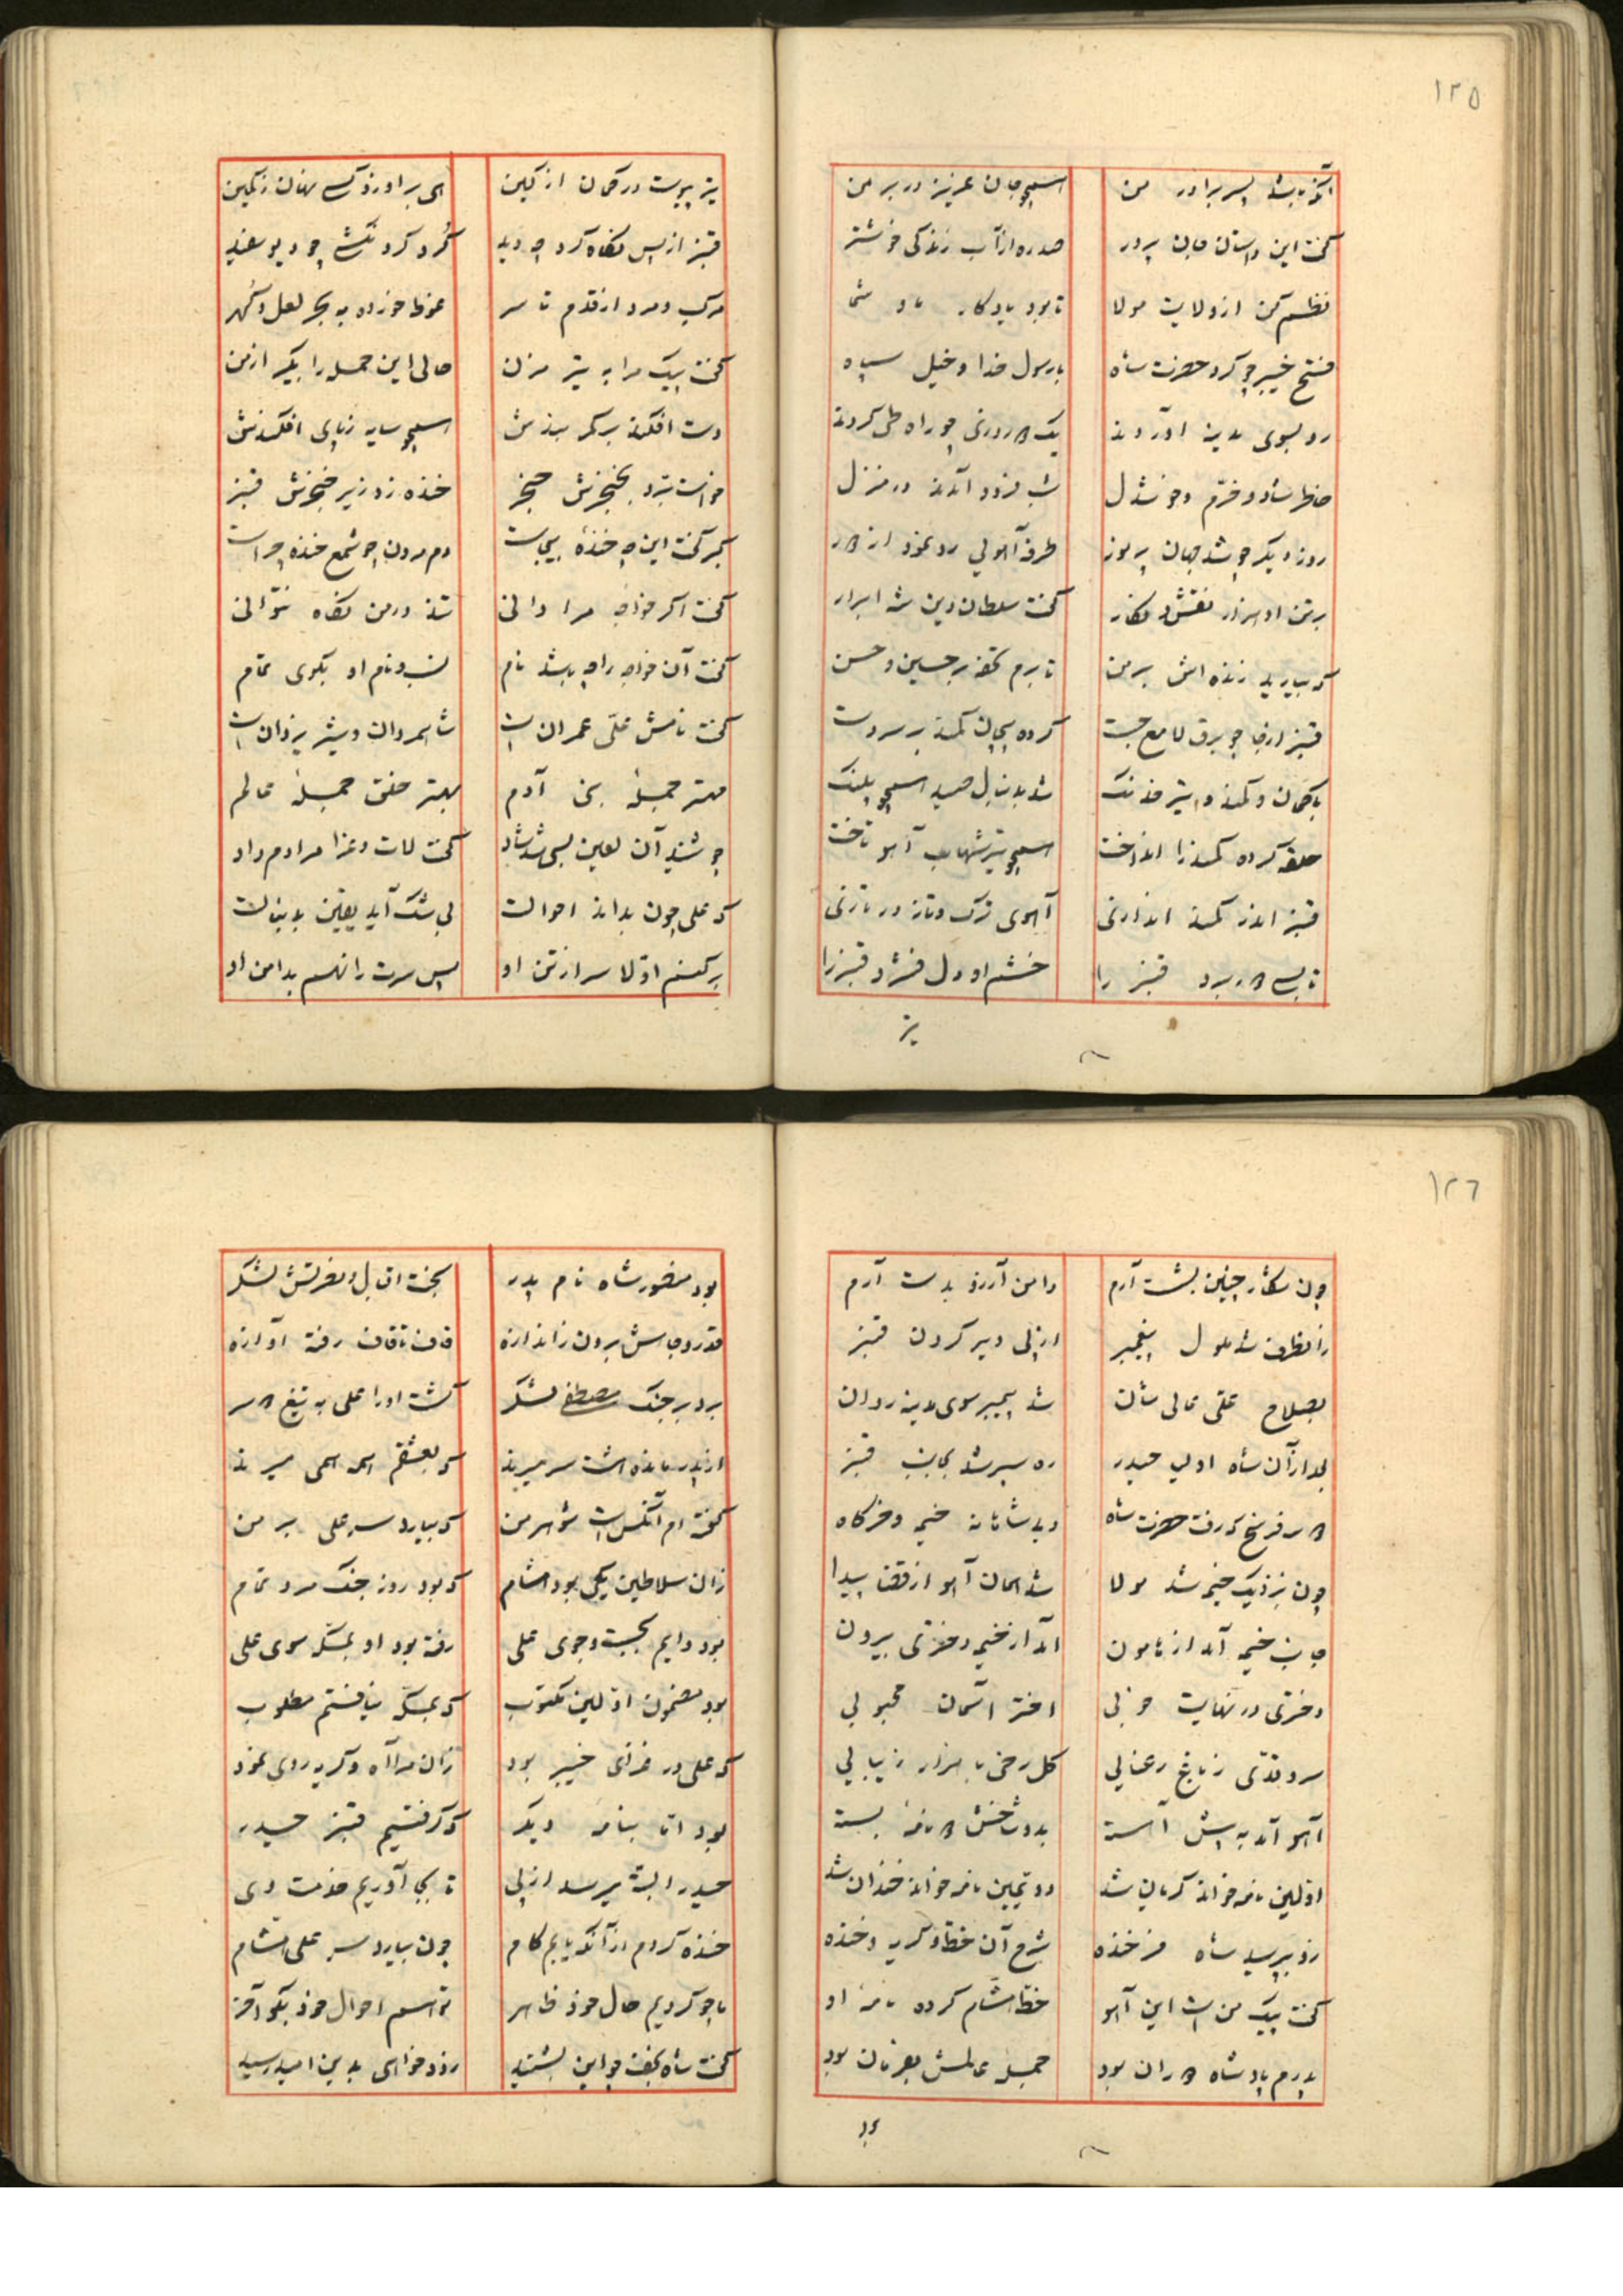 ١٢٥
آنکه باشد پسر برادر من همچو جان عزیز در بر من
گفت این داستان جان پرور صد ره از آب زندگی خوشتر
نظم کن از ولایت مولا تا بود یادگار ما و شما
فتح خیبر چو کرد حضرت شاه با رسول خدا و خیل سپاه
رو بسوی مدینه آوردند یک دو روزی چو راه طی کردند
خاطر شاد و خرّم و خوشدل شب فرود آمدند در منزل
روز دیگر چو شد جهان پر نور طرفه آهویی رو نمود از دور
بر تن او هزار نقش و نگار گفت سلطان دین شه ابرار
که بیارید زنده اش بر من تا برم تحفه بر حسین و حسن
قنبر از جا چو برق لامع جست کرده پیچان کمند بر سر دست
با کمان و کمند و تیر خدنگ شد بدنبال صید همچو پلنگ
حلقه کرده کمند را انداخت همچو تیر شهاب آهو تاخت
قنبر اندر کمند اندازی آهوی ترک و تاز در تازی
تا بسی دور برد قنبر را خشم او دل فشرد قنبر را
تیر
تیر پیوست در کمان از کین
قنبر از پس نگاه کرد چه دید گرد کردنکشی چو دیو سفید
مرکب و مرد از قدم تا سر غوطه خورده به بحر لعل و گهر
گفت پیک مرا به تیر مزن حالی این حمله را بگیر از من
دست افکند بر کمر بندش همچو سایه ز پای افکندش
خواست برّد بخنجرش حنجر خنده زد زیر خنجرش قنبر
گبر گفت این چه خندهٔ بیجاست دم مردن چو شمع خنده چراست
گفت اگر خواجهٔ مرا دانی تند در من نگاه نتوانی
گفت آن خواجه را چه باشد نام نسب و نام او بگوی تمام
گفت نامش علّی عمران است شاه مردان و شیر یزدان است
مهتر جملهٔ بنی آدم بهتر خلق جملهٔ عالم
چو شنید آن لعین بسی شد شاد گفت لات و عزا مرادم داد
که علی چون بداند احوالت بی شک آید یقین بدنبالت
بر کنم اوّلا سر از تن او پس سرت را نهم بدامن او
١٢٦
چون شکار چنین بشست آرم دامن آرزو بدست آرم
زانطرف شد ملول پیغمبر از پی دیر کردن قنبر
بصلاح علّی عالی شان شد پیمبر سوی مدینه روان
بعد از آن شاه اولیا حیدر ره سپر شد بجانب قنبر
دو سه فرسخ که رفت حضرت شاه دید شاهانه خیمه و خرگاه
چون بنزدیک خیمه شد مولا شد همان آهو از قفا پیدا
جانب خیمه آمد از هامون آمد از خیمه دختری بیرون
دختری در نهایت خوبی اختر آسمان محبوبی
سرو قدّی ز باغ رعنایی گل رخی با هزار زیبایی
آهو آمد به پیش آهسته بدو شاخش دو نامه بسته
اوّلین نامه خواند گریان شد دوّیمین نامه خواند خندان شد
زو بپرسید شاه فرخنده شرح آن خطّ و گریه و خنده
گفت پیک من است این آهو خطّ هشام کرده نامهٔ او
پدرم پادشاه دوران بود جمله عالمش بفرمان بود
بود
بود منصور شاه نام پدر بخت اقبال و نصرتش لشکر
قدر و جاهش برون ز اندازه قاف تا قاف رفته آوازه
برد بر جنگ مصطفی لشکر کشت او را علی به تیغ دو سر
گفته ام آنکس است شوهر من که بیارد سر علی بر من
زان سلاطین یکی بود هشام که بود روز جنگ مرد تمام
بود دایم بجست و جوی علی رفته بود او بمکّه سوی علی
بود مضمون اوّلین مکتوب که بمکّه نیافتم مطلوب
که علی در غزای خیبر بود زان مرا آه و گریه روی نمود
بود امّا بنامهٔ دیگر که گرفتیم قنبر حیدر
حیدر البتّه میرسد از پی تا بجا آوریم خدمت وی
خنده کردم از آنکه یابم کام چون بیارد سر علی هشام
ما چو کردیم حال خود ظاهر تو هم احوال خود بگو آخر
گفت شاه نجف چو این بشنید زود خواهی بدین امید رسید